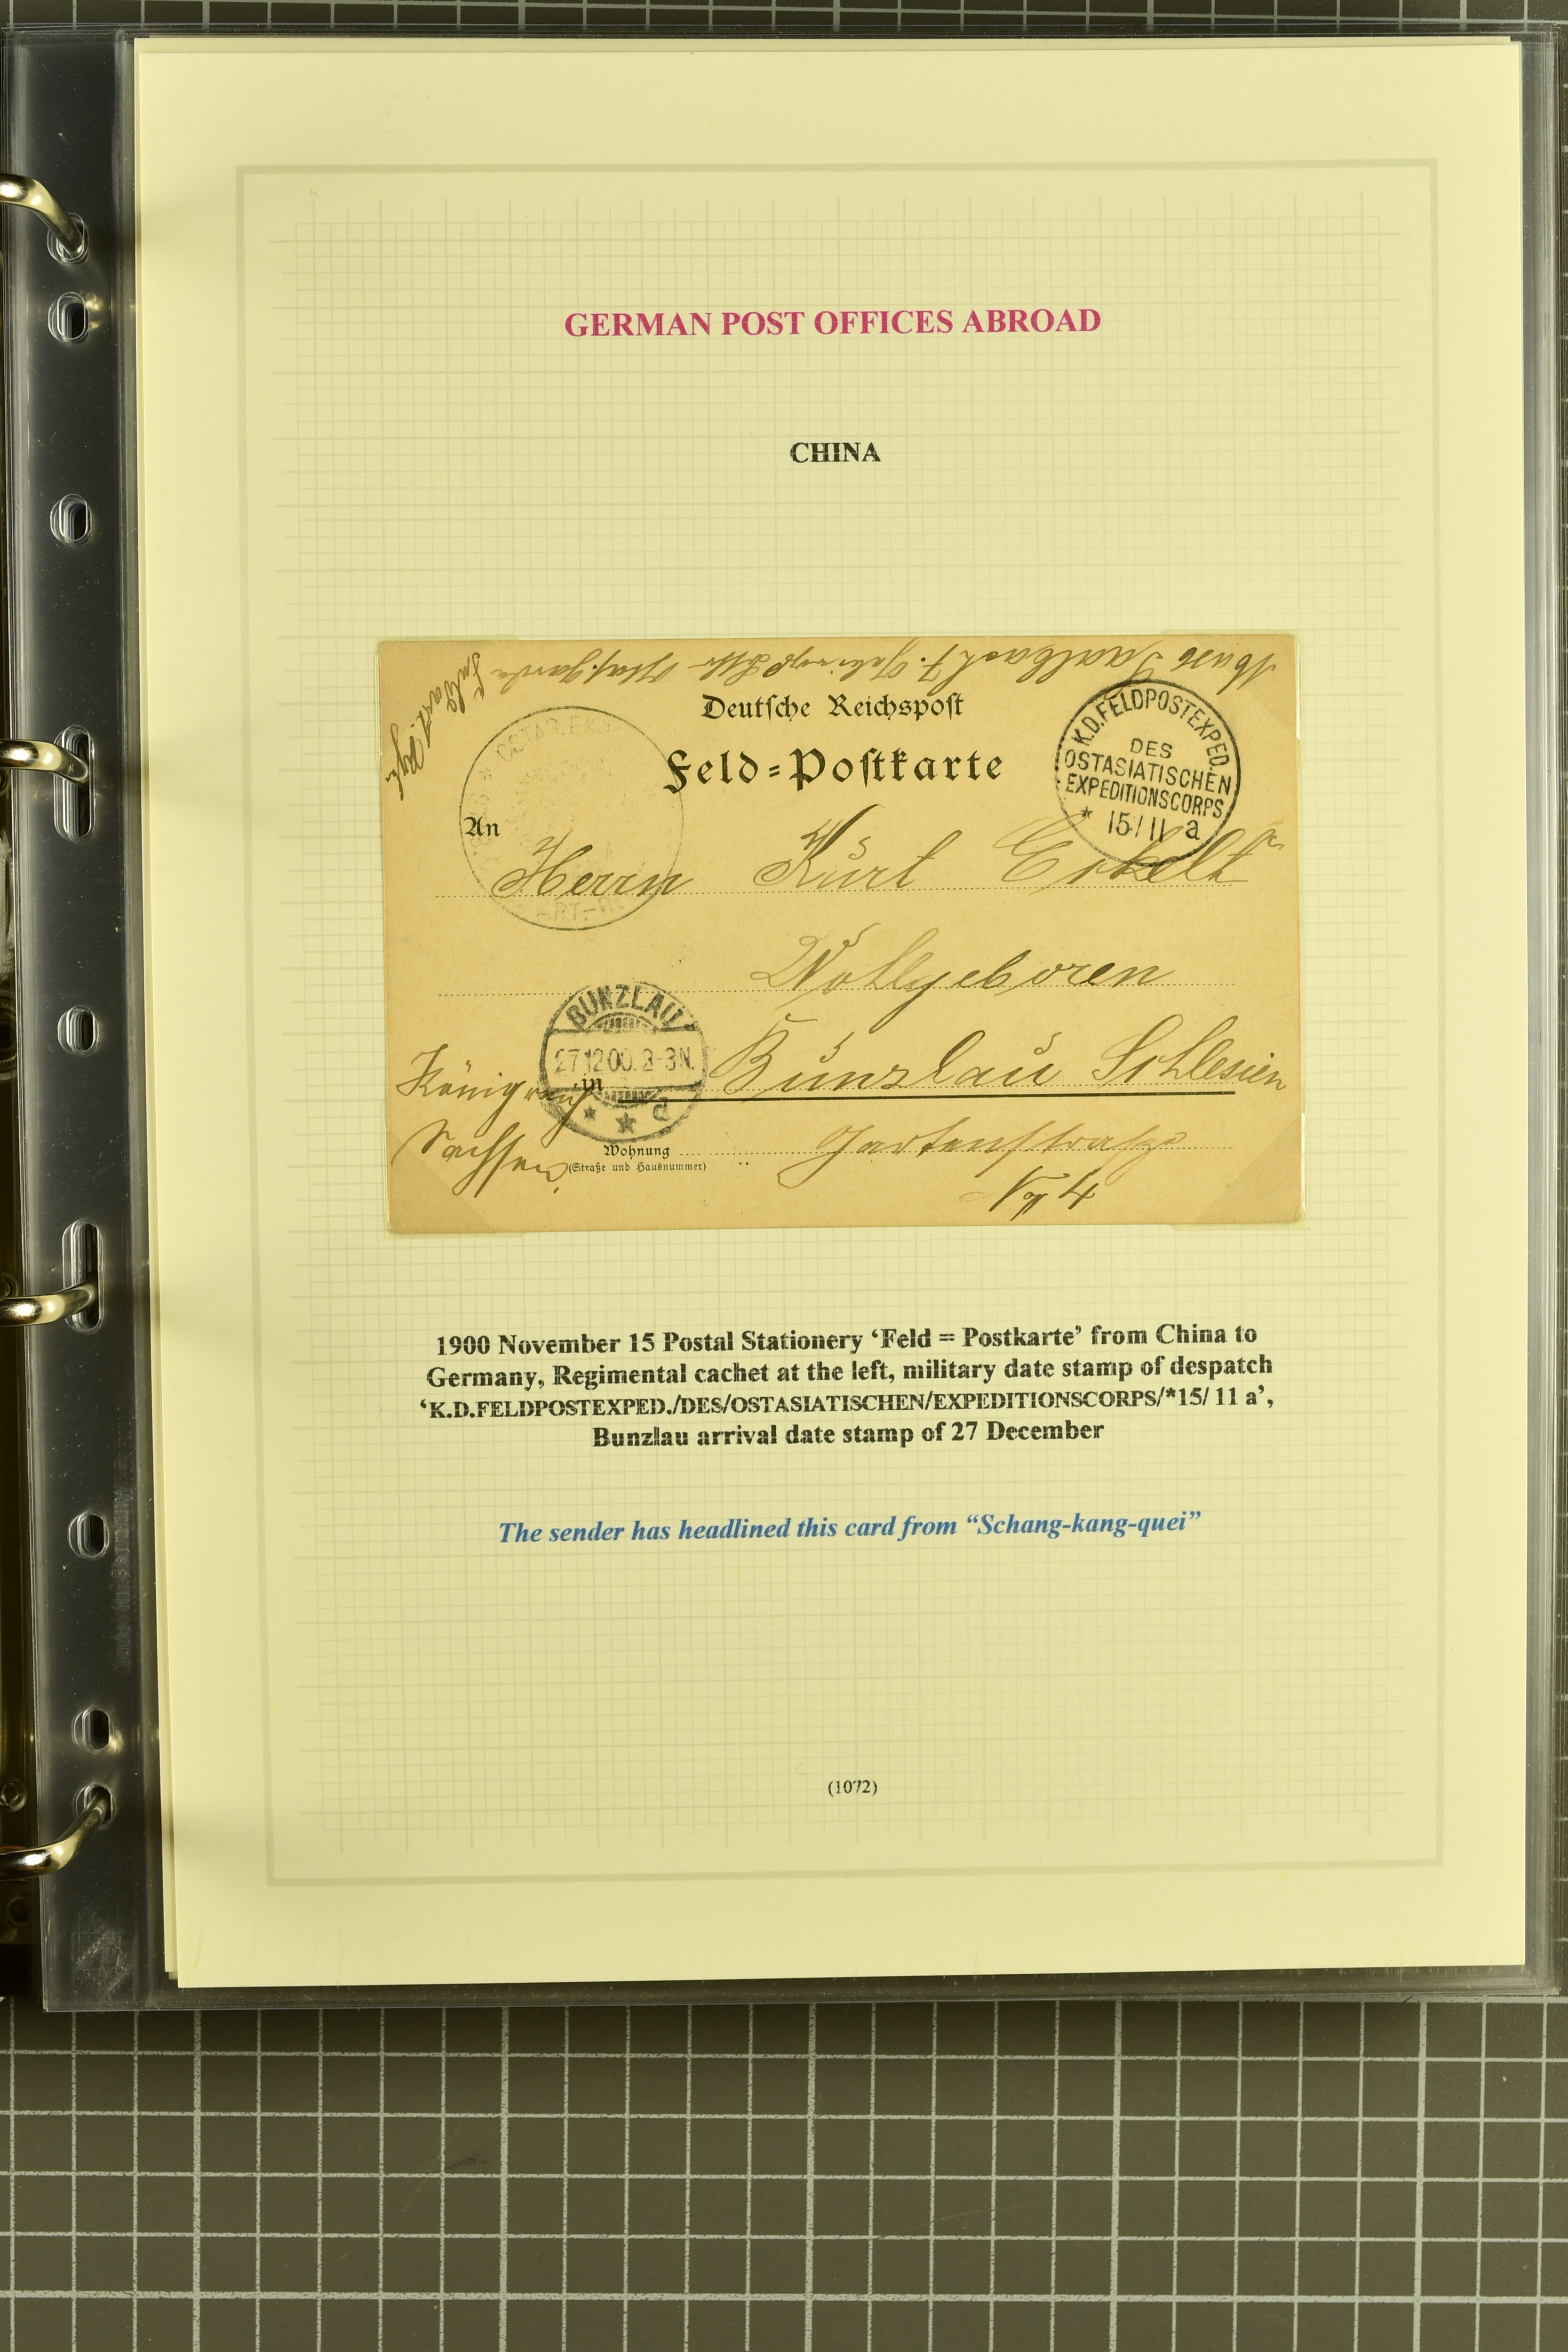 GERMAN POST OFFICES ABROAD
CHINA
Deutsche Reichspost
Feld=Postkarte
K.D.FELDPOSTEXPED.
DES
OSTASIATISCHEN
EXPEDITIONSCORPS
* 15/11 a
OSTAS.EX
An
Herrn Kurt
Wollgeboren
BUNZLAU
27.12.00. 2-3N.
d
in
Bunzlau Schlesien
Königreich
Sachsen
Wohnung
(Straße und Hausnummer)
Gartenstraße
4
1900 November 15 Postal Stationery ‘Feld = Postkarte’ from China to
Germany, Regimental cachet at the left, military date stamp of despatch
‘K.D.FELDPOSTEXPED./DES/OSTASIATISCHEN/EXPEDITIONSCORPS/*15/ 11 a’,
Bunzlau arrival date stamp of 27 December
The sender has headlined this card from “Schang-kang-quei”
(1072)